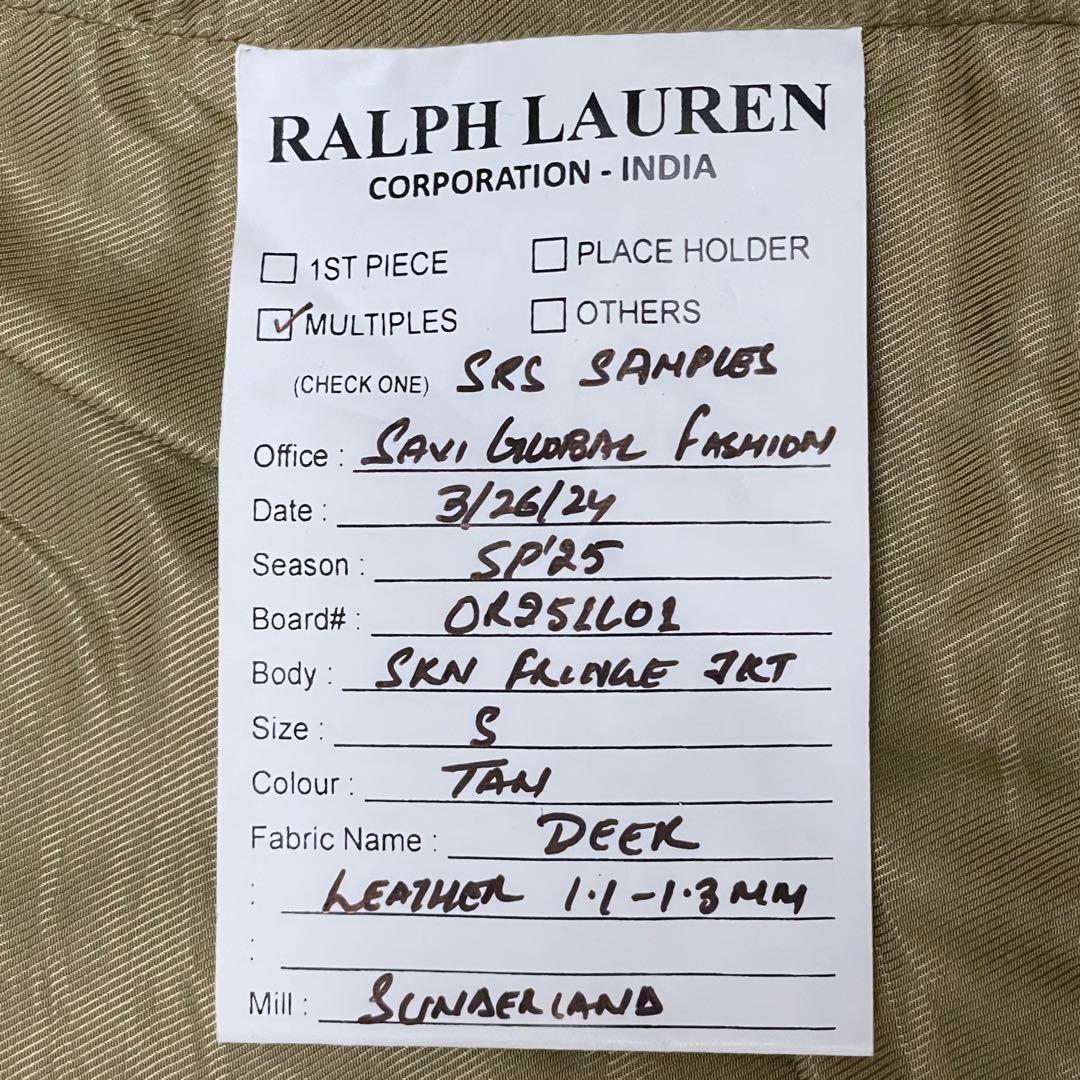 RALPH LAUREN
CORPORATION - INDIA
1ST PIECE PLACE HOLDER
MULTIPLES OTHERS
(CHECK ONE) SRS SAMPLES
Office : SAVI GLOBAL FASHION
Date : 3/26/24
Season : SP'25
Board# : OR251L01
Body : SKN FRINGE JKT
Size : S
Colour : TAN
Fabric Name : DEER
: LEATHER 1.1-1.3 MM
:
Mill : SUNDERLAND